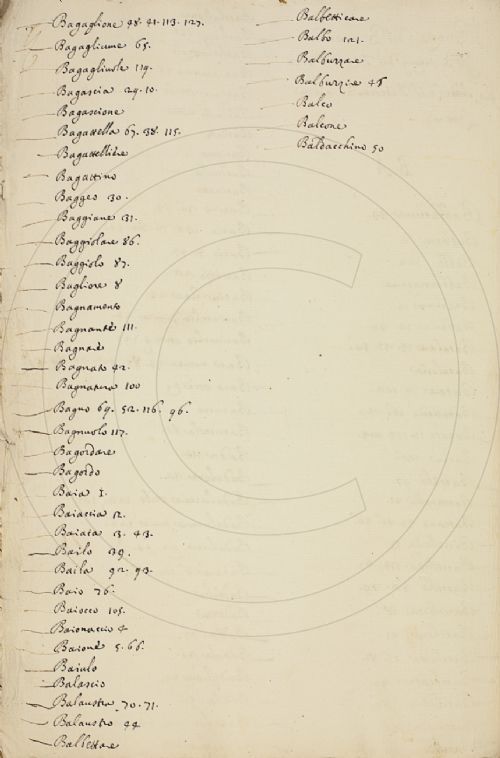 Bagaglione 48. 41. 113. 127.
Bagagliume 65.
Bagagliuole 119.
Bagascia 29. 10.
Bagascione
Bagattella 67. 38. 115.
Bagattelliere
Bagattino
Baggeo 30.
Baggiane 31.
Baggiolare 86.
Baggiolo 87.
Bagliore 8
Bagnamento
Bagnante 111.
Bagnare
Bagnato 42.
Bagnatura 100
Bagno 69. 52. 116. 96.
Bagnuolo 117.
Bagordare
Bagordo
Baia 1.
Baiaccia 12.
Baiata 3. 43.
Bailo 39.
Baila 92. 93.
Baio 76.
Baiocco 105.
Baionaccio 4
Baione 5. 66.
Baiulo
Balascio
Balaustra 70. 71.
Balaustro 44
Balbettare
Balbetticare
Balbo 121.
Balbuzzare
Balbuzzie 46
Balco
Balcone
Baldacchino 50